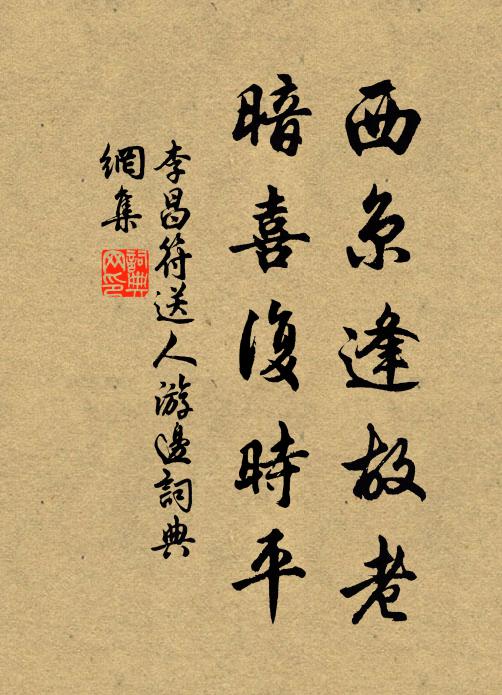 西京逢故老
暗喜復時平
李昌符送人游邊詞典
網集
詞典
网印